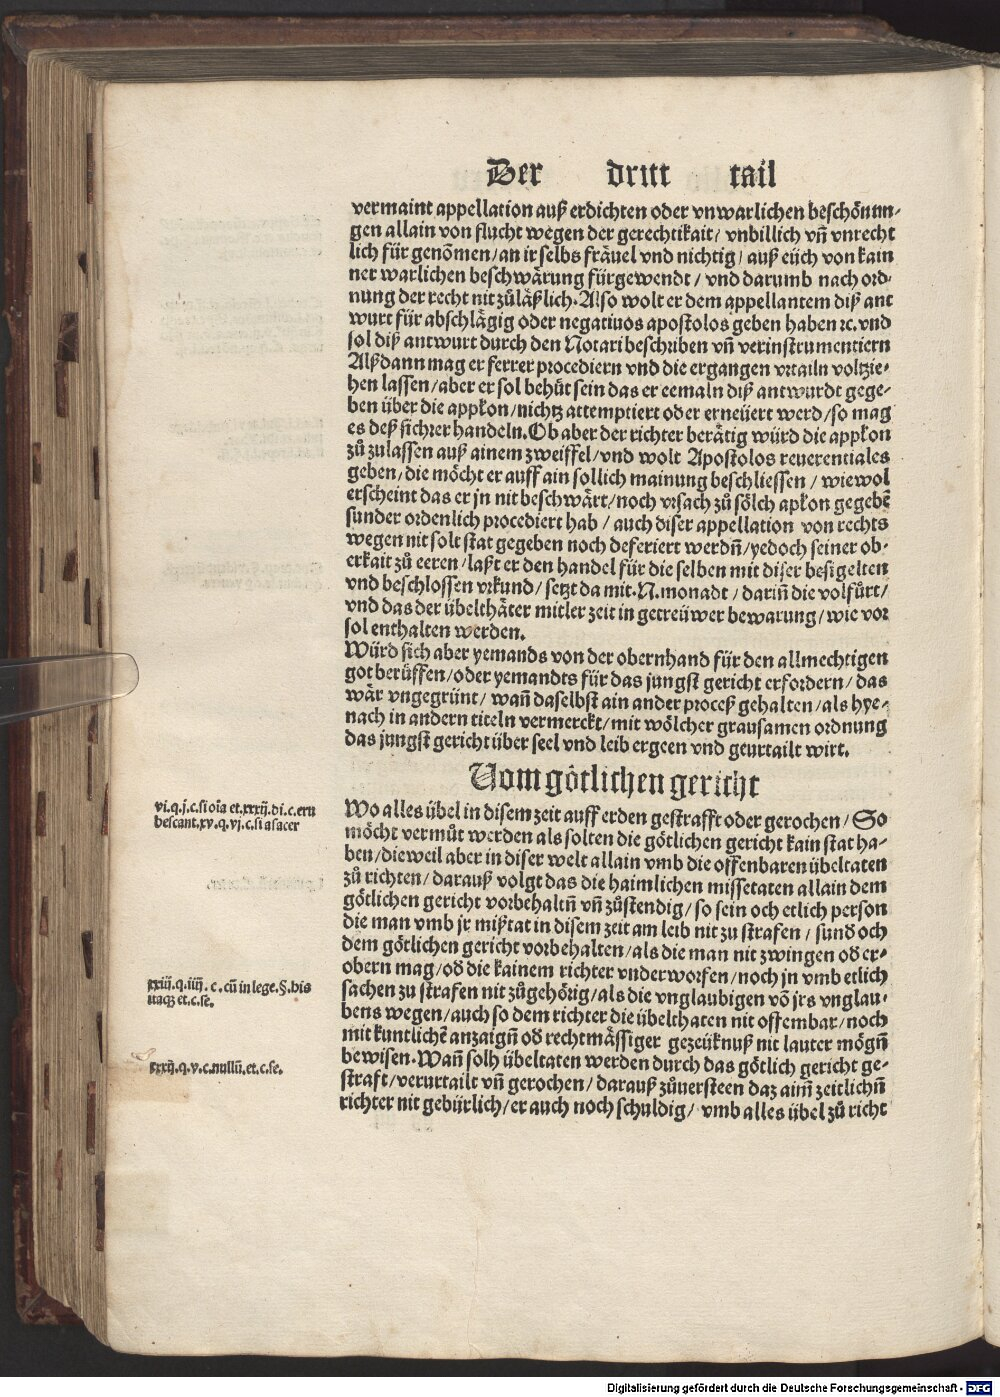 Der dritt tail
vermaint appellation auß erdichten oder vnwarlichen beschönun-
gen allain von flucht wegen der gerechtikait/ vnbillich vn̄ vnrecht
lich für genōmen/an ir selbs fräuel vnd nichtig/ auß eüch von kain
ner warlichen beschwärung fürgewendt/ vnd darumb nach ord-
nung der recht nit zůläßlich. Also wolt er dem appellantem diß ant
wurt für abschlägig oder negatiuos apostolos geben haben ꝛc. vnd
sol diß antwurt durch den Notari beschriben vn̄ verinstrumentiern
Alßdann mag er ferrer procediern vnd die ergangen vrtailn voltzie-
hen lassen/aber er sol behüt sein das er eemaln diß antwurdt gege-
ben über die appkon/nichtz attemptiert oder erneüert werd/so mag
es deß sichrer handeln. Ob aber der richter berätig würd die appkon
zů zulassen auß ainem zweiffel/vnd wolt Apostolos reuerentiales
geben/die möcht er auff ain sollich mainung beschliessen/ wiewol
erscheint das er jn nit beschwärt/noch vrsach zů sölch apkon gegebē
sunder ordenlich procediert hab/ auch diser appellation von rechts
wegen nit solt stat gegeben noch deferiert werdn̄/yedoch seiner ob-
erkait zů eeren/laßt er den handel für die selben mit diser besigelten
vnd beschlossen vrkund/ setzt da mit. N. monadt/ darin̄ die volfůrt/
vnd das der übelthäter mitler zeit in getreüwer bewarung/wie vor
sol enthalten werden.
Würd sich aber yemands von der obernhand für den allmechtigen
got berüffen/oder yemandts für das jungst gericht erfordern/ das
wär vngegrünt/ wan̄ daselbst ain ander proceß gehalten/als hye-
nach in andern titeln vermerckt/mit wölcher grausamen ordnung
das jungst gericht über seel vnd leib ergeen vnd geurtailt wirt.
Vom götlichen gericht
vi.q.j.c.si oīa et.xxxij.di.c.eru
bescant.xv.q.vj.c.si a sacer
Wo alles übel in disem zeit auff erden gestrafft oder gerochen/ So
möcht vermůt werden als solten die götlichen gericht kain stat ha-
ben/dieweil aber in diser welt allain vmb die offenbaren übeltaten
zů richten/darauß volgt das die haimlichen missetaten allain dem
götlichen gericht vorbehaltn̄ vn̄ zůstendig/so sein och etlich person
die man vmb jr mißtat in disem zeit am leib nit zu strafen/ sund och
dem götlichen gericht vorbehalten/als die man nit zwingen od er-
obern mag/od die kainem richter vnderworfen/noch jn vmb etlich
xxiij.q.iiij.c.cū in lege.§.his
itaqꝫ et.c.se.
sachen zu strafen nit zůgehörig/als die vnglaubigen vō jrs vnglau-
bens wegen/auch so dem richter die übelthaten nit offembar/noch
mit kuntlichē anzaign̄ od rechtmässiger gezeüknuß nit lauter mögn̄
xxxij.q.v.c.nullū.et.c.se.
bewisen. Wan̄ solh übeltaten werden durch das götlich gericht ge-
straft/verurtailt vn̄ gerochen/darauß zůuersteen daz aim̄ zeitlichn̄
richter nit gebürlich/er auch noch schuldig/ vmb alles übel zů richt
Digitalisierung gefördert durch die Deutsche Forschungsgemeinschaft - DFG